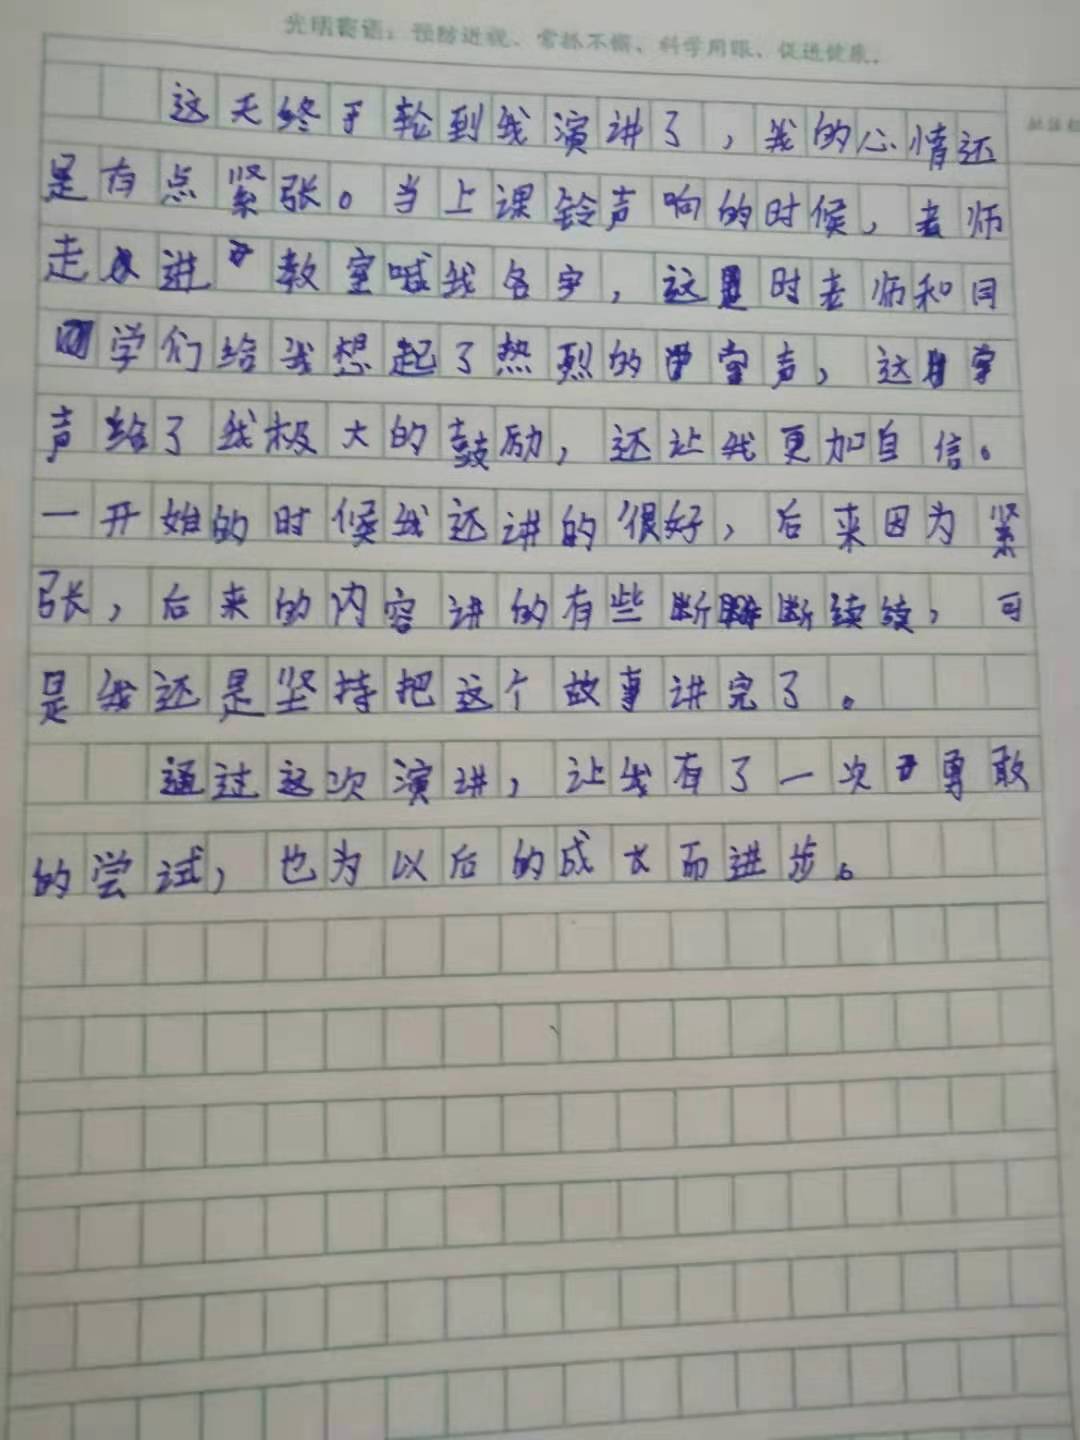 光明寄语：预防近视、常抓不懈、科学用眼、促进健康。
这天终于轮到我演讲了，我的心情还
是有点紧张。当上课铃声响的时候，老师
走进教室喊我名字，这时老师和同
学们给我想起了热烈的掌声，这掌
声给了我极大的鼓励，还让我更加自信。
一开始的时候我还讲的很好，后来因为紧
张，后来的内容讲的有些断断续续，可
是我还是坚持把这个故事讲完了。
通过这次演讲，让我有了一次勇敢
的尝试，也为以后的成长而进步。